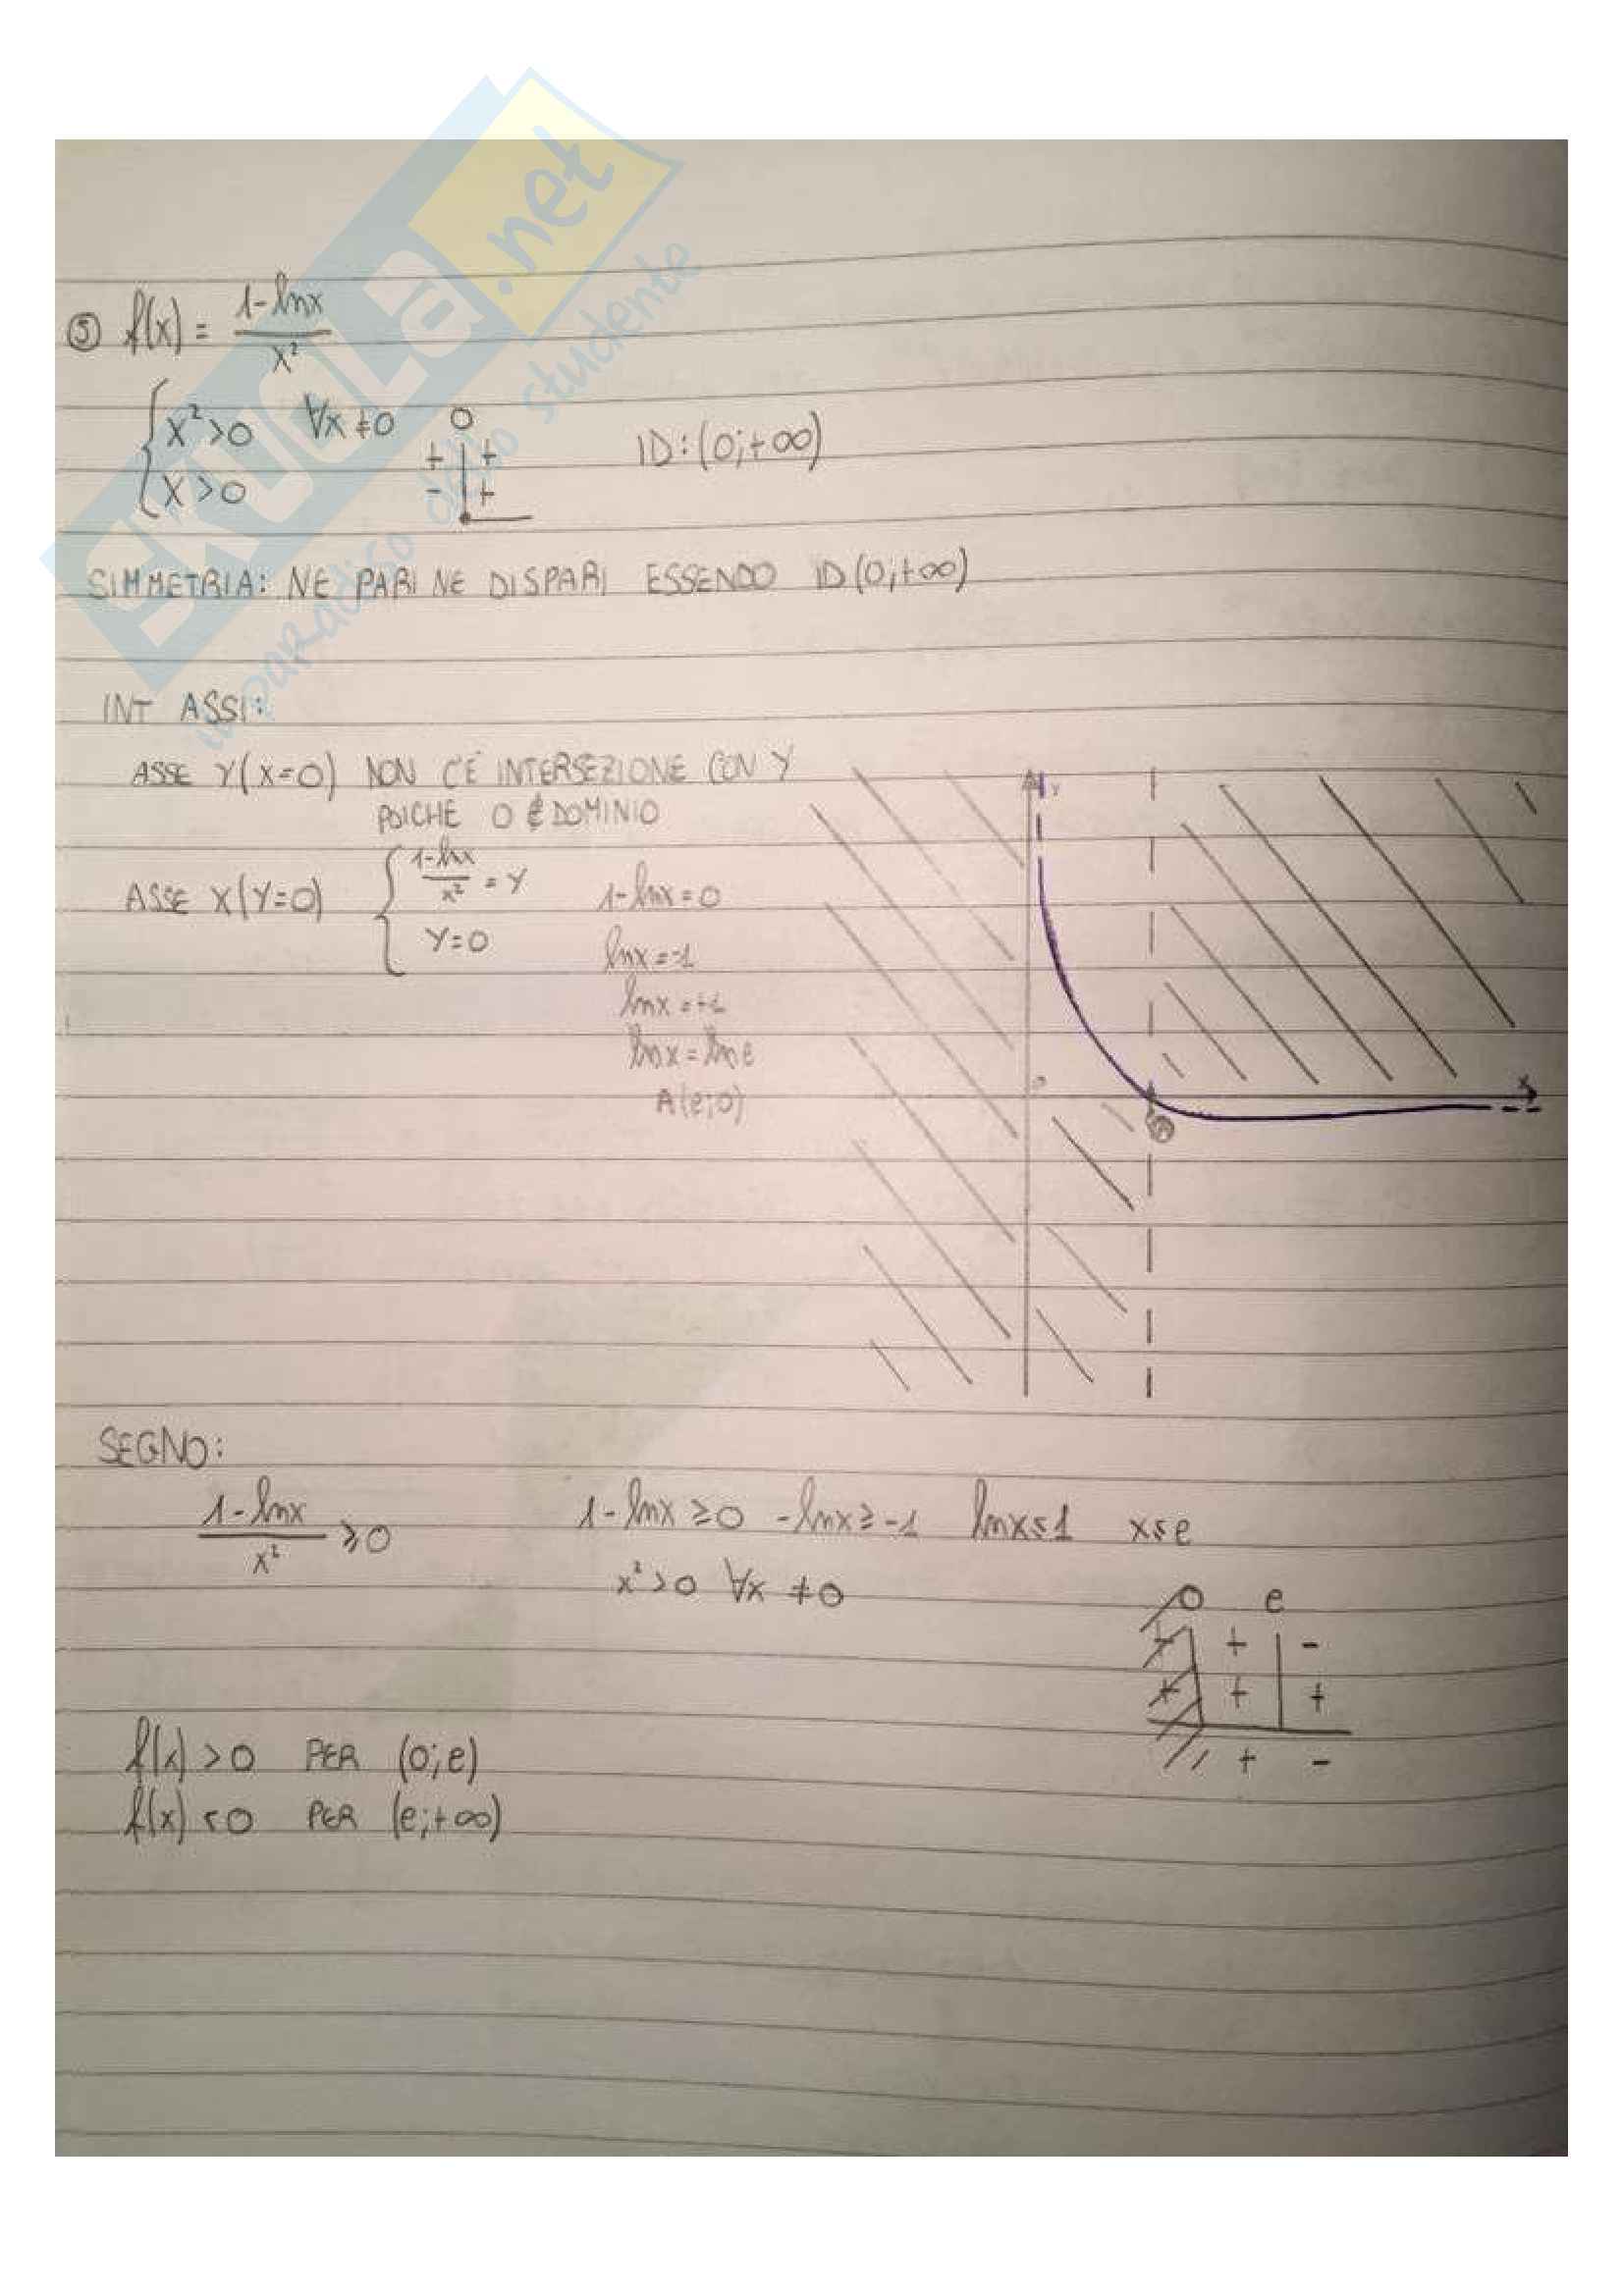 SKUOLa.net
il paradiso dello studente
⑤ f(x) = (1-lnx)/x²
{ x²>0 ∀x≠0 0
+ +
x>0 - +
ID: (0;+∞)
SIMMETRIA: NE PARI NE DISPARI ESSENDO ID(0;+∞)
INT ASSI:
ASSE Y(X=0) NON C'È INTERSEZIONE CON Y
POICHE 0 ∉ DOMINIO
ASSE X(Y=0) { (1-lnx)/x² = Y
Y=0
1-lnx=0
lnx=-1
lnx=+1
lnx=lne
A(e;0)
Y
0
X
SEGNO:
(1-lnx)/x² ≥0 1-lnx≥0 -lnx≥-1 lnx≤1 x≤e
x²>0 ∀x ≠0
0 e
+ + -
+ + +
+ -
f(x) >0 PER (0;e)
f(x) <0 PER (e;+∞)